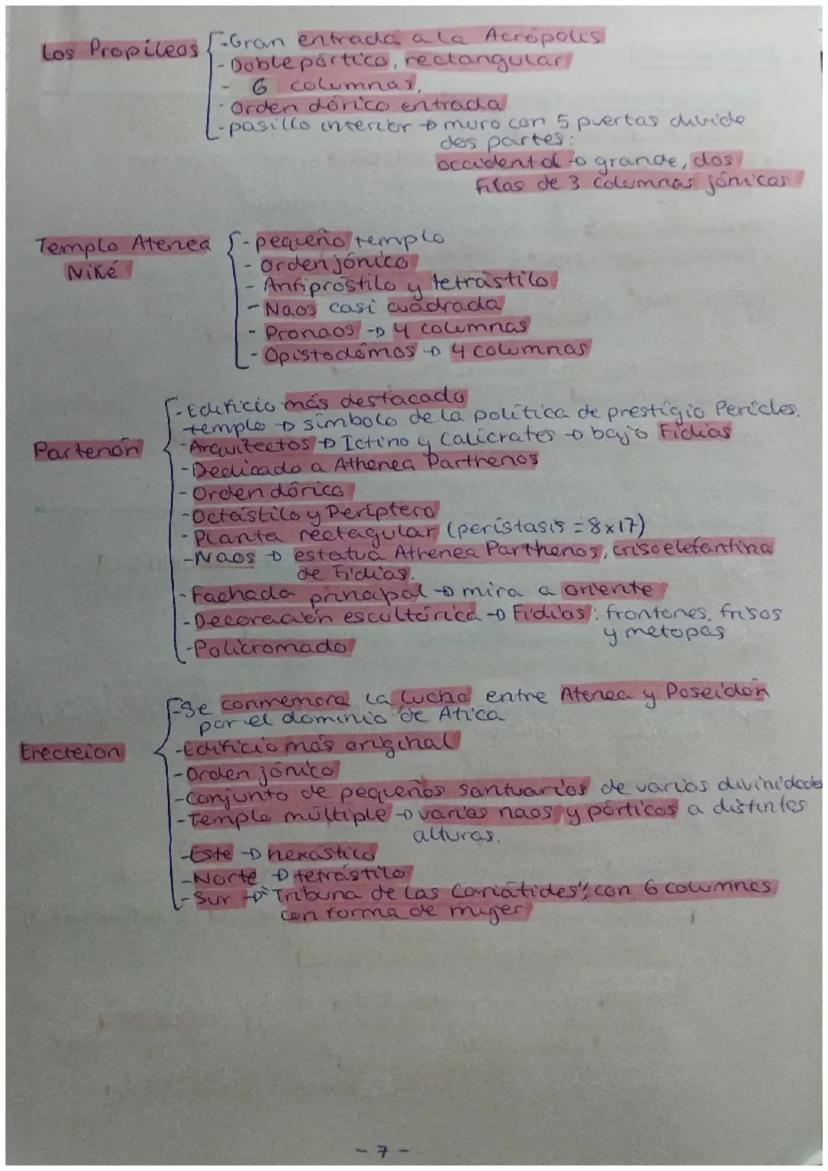 Los Propileos
-Gran entrada a la Acrópolis
-Doble pórtico, rectangular
- 6 columnas.
- Orden dórico entrada
-pasillo interior → muro con 5 puertas divide
dos partes:
occidental → grande, dos
filas de 3 columnas jónicas
Templo Atenea
Niké
- pequeño templo
- Orden jónico
- Anfipróstilo y tetrástilo
- Naos casi cuadrada
- Pronaos → 4 columnas
- Opistodómos → 4 columnas
Partenón
-Edificio más destacado
templo → símbolo de la política de prestigio Pericles.
-Arquitectos → Ictino y Calícrates → bajo Fidias
-Dedicado a Athenea Parthenos
-Orden dórico
-Octástilo y Períptero
-Planta rectagular (perístasis = 8x17)
-Naos → estatua Athenea Parthenos, crisoelefantina
de Fidias.
-Fachada principal → mira a oriente
-Decoración escultórica → Fidias: frontones, frisos
y metopas
-Policromado
Erecteion
-Se conmemora la lucha entre Atenea y Poseidón
por el dominio de Ática
-Edificio más original
-Orden jónico
-Conjunto de pequeños santuarios de varias divinidades
-Templo múltiple → varias naos y pórticos a distintas
alturas.
-Este → hexástilo
-Norte → tetrástilo
-Sur → "Tribuna de las Cariátides", con 6 columnas
con forma de mujer
- 7 -